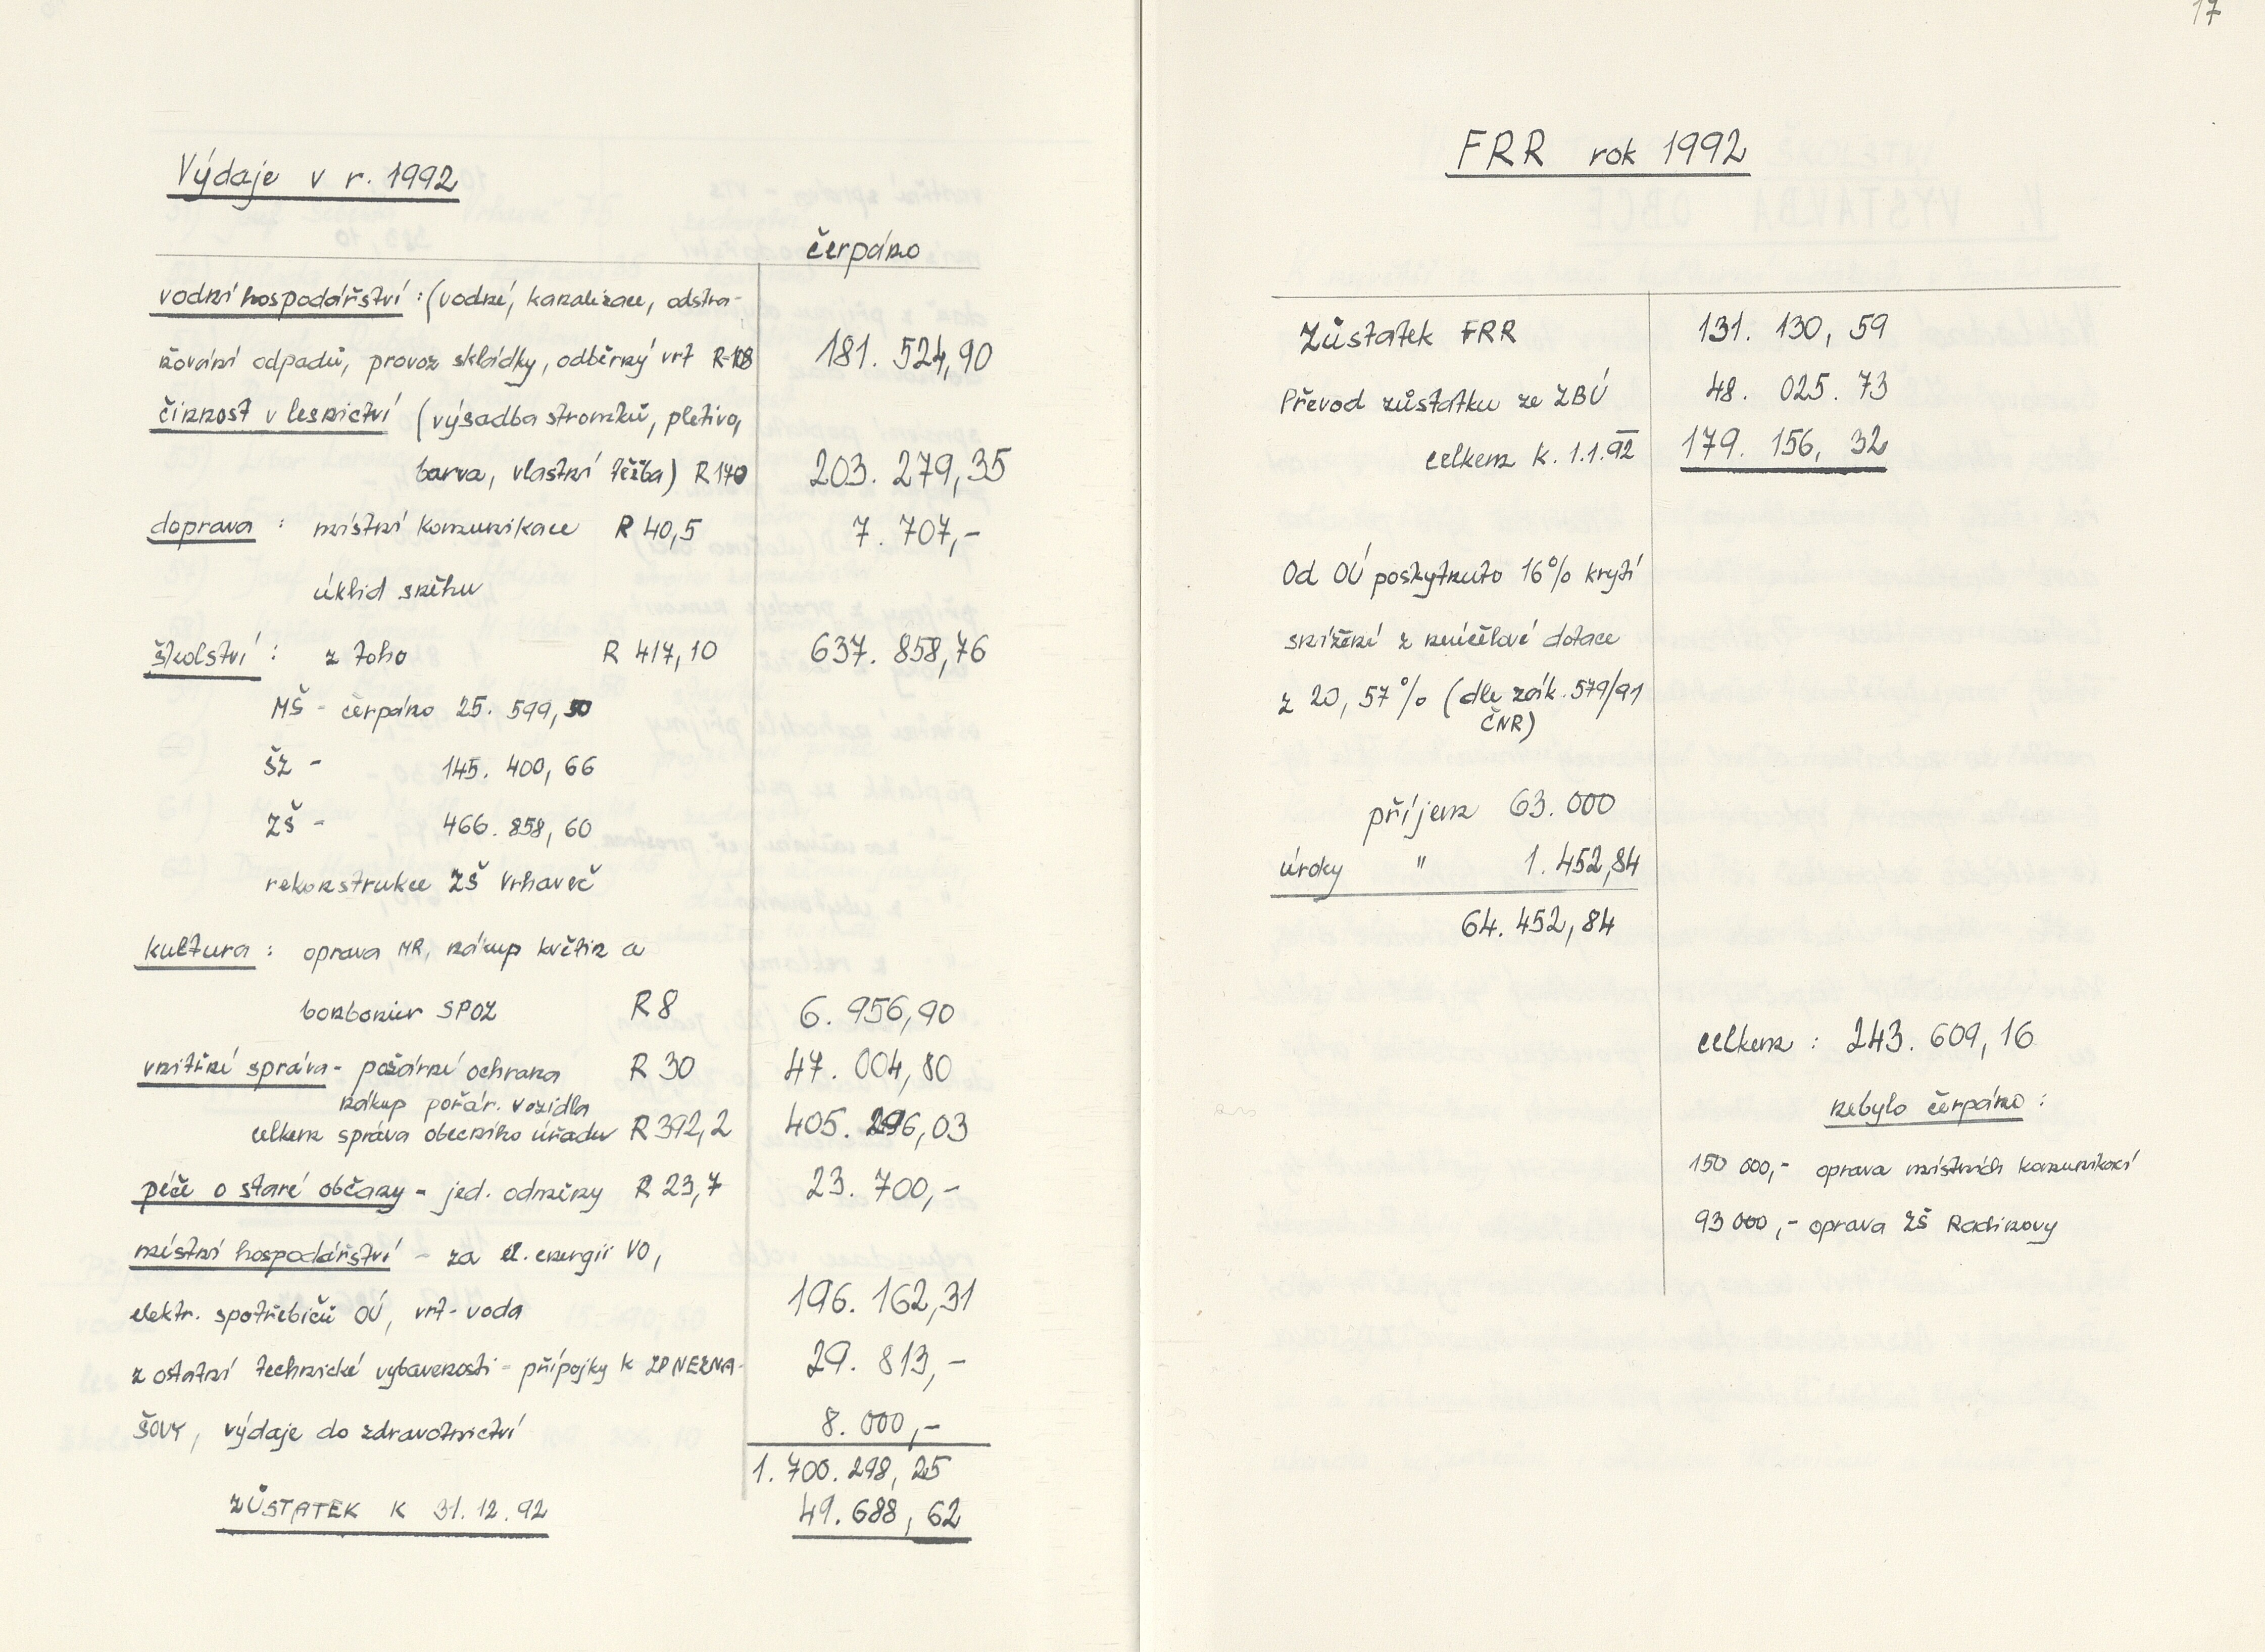 Výdaje v r. 1992
čerpáno
vodní hospodářství : (vodné, kanalizace, odstra-
ňování odpadů, provoz skládky, odběrný vrt R-108 181. 524,90
činnost v lesnictví (výsadba stromků, pletivo,
barva, vlastní těžba) R 170 203. 279,35
doprava : místní komunikace R 40,5 7. 707,-
úklid sněhu
školství : z toho R 417,10 637. 858,76
MŠ - čerpáno 25. 599,50
ŠZ - 145. 400,66
ZŠ - 466. 858,60
rekonstrukce ZŠ Vrhaveč
kultura : oprava MR, nákup květin a
bonbonier SPOZ R 8 6. 956,90
vnitřní správa - požární ochrana R 30 47. 004,80
nákup požár. vozidla
celkem správa obecního úřadu R 392,2 405. 296,03
péče o staré občany - jed. odměny R 23,7 23. 700,-
místní hospodářství - za el. energii VO,
elektr. spotřebičů OÚ, vrt-voda 196. 162,31
z ostatní technické vybavenosti - přípojky k ZP NEZNA- 29. 813,-
ŠOVY, výdaje do zdravotnictví 8. 000,-
1. 700. 298, 25
ZŮSTATEK K 31. 12. 92 49. 688, 62
17
FRR rok 1992
Zůstatek FRR 131. 130, 59
Převod zůstatku ze ZBÚ 48. 025. 73
celkem k. 1.1.92 179. 156, 32
Od OÚ poskytnuto 16% krytí
snížení z neúčelové dotace
z 20, 57% (dle zák. 579/91
ČNR)
příjem 63. 000
úroky " 1. 452,84
64. 452, 84
celkem : 243. 609, 16
nebylo čerpáno :
150 000,- oprava místních komunikací
93 000,- oprava ZŠ Radinovy